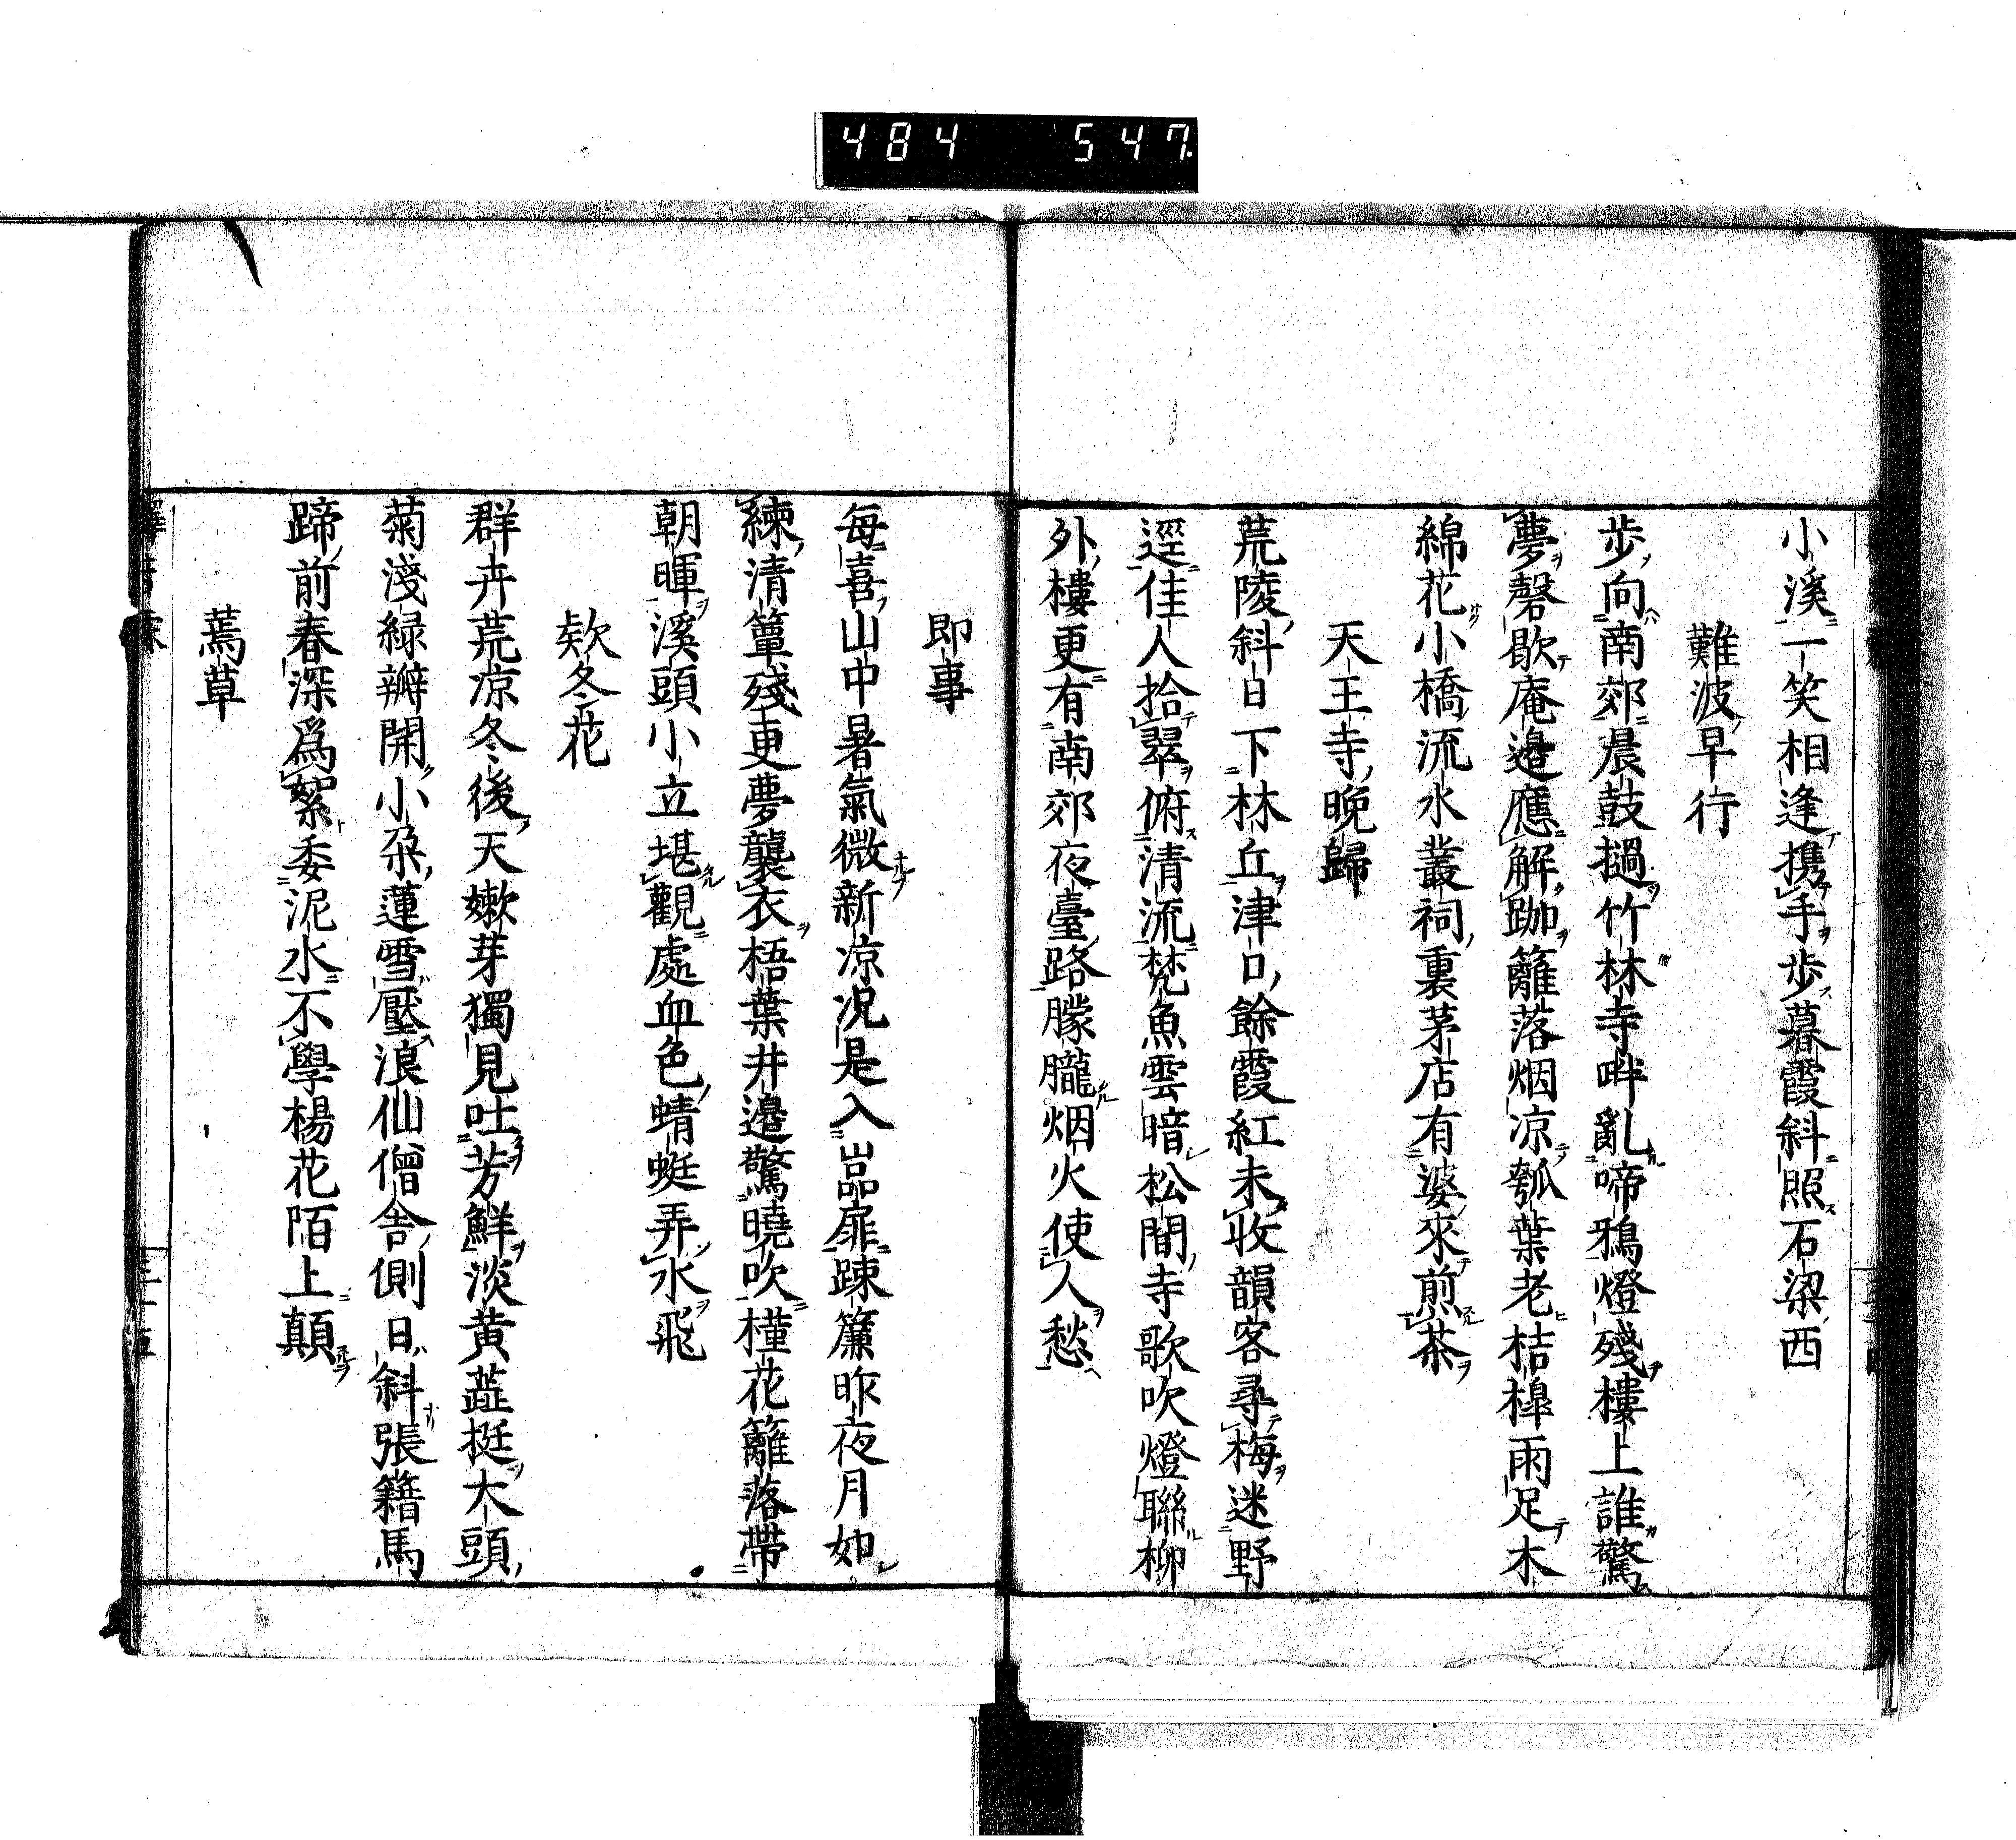 484 547
小溪一笑相逢携手步暮霞斜照石梁西
難波早行
步向南郊晨鼓撾竹林寺畔亂啼鴉燈殘樓上誰驚
夢磬歇庵邉應解跏籬落烟凉瓠葉老桔槹雨足木
綿花小橋流水叢祠裏茅店有婆來煎茶
天王寺晚歸
荒陵斜日下林丘津口餘霞紅未收韻客尋梅迷野
逕佳人拾翠俯清流梵魚雲暗松間寺歌吹燈聯柳
外樓更有南郊夜臺路朦朧烟火使人愁
即事
每喜山中暑氣微新凉况是入嵓扉踈簾昨夜月如
練清簟殘更夢襲衣梧葉井邉驚曉吹槿花籬落帶
朝暉溪頭小立堪觀處血色蜻蜓弄水飛
欵冬花
群卉荒凉冬後天嫩芽獨見吐芳鮮淡黄蕋挺木頭
菊淺緑瓣開小朶蓮雪壓浪仙僧舍側日斜張籍馬
蹄前春深爲絮委泥水不學楊花陌上顛
蔫草